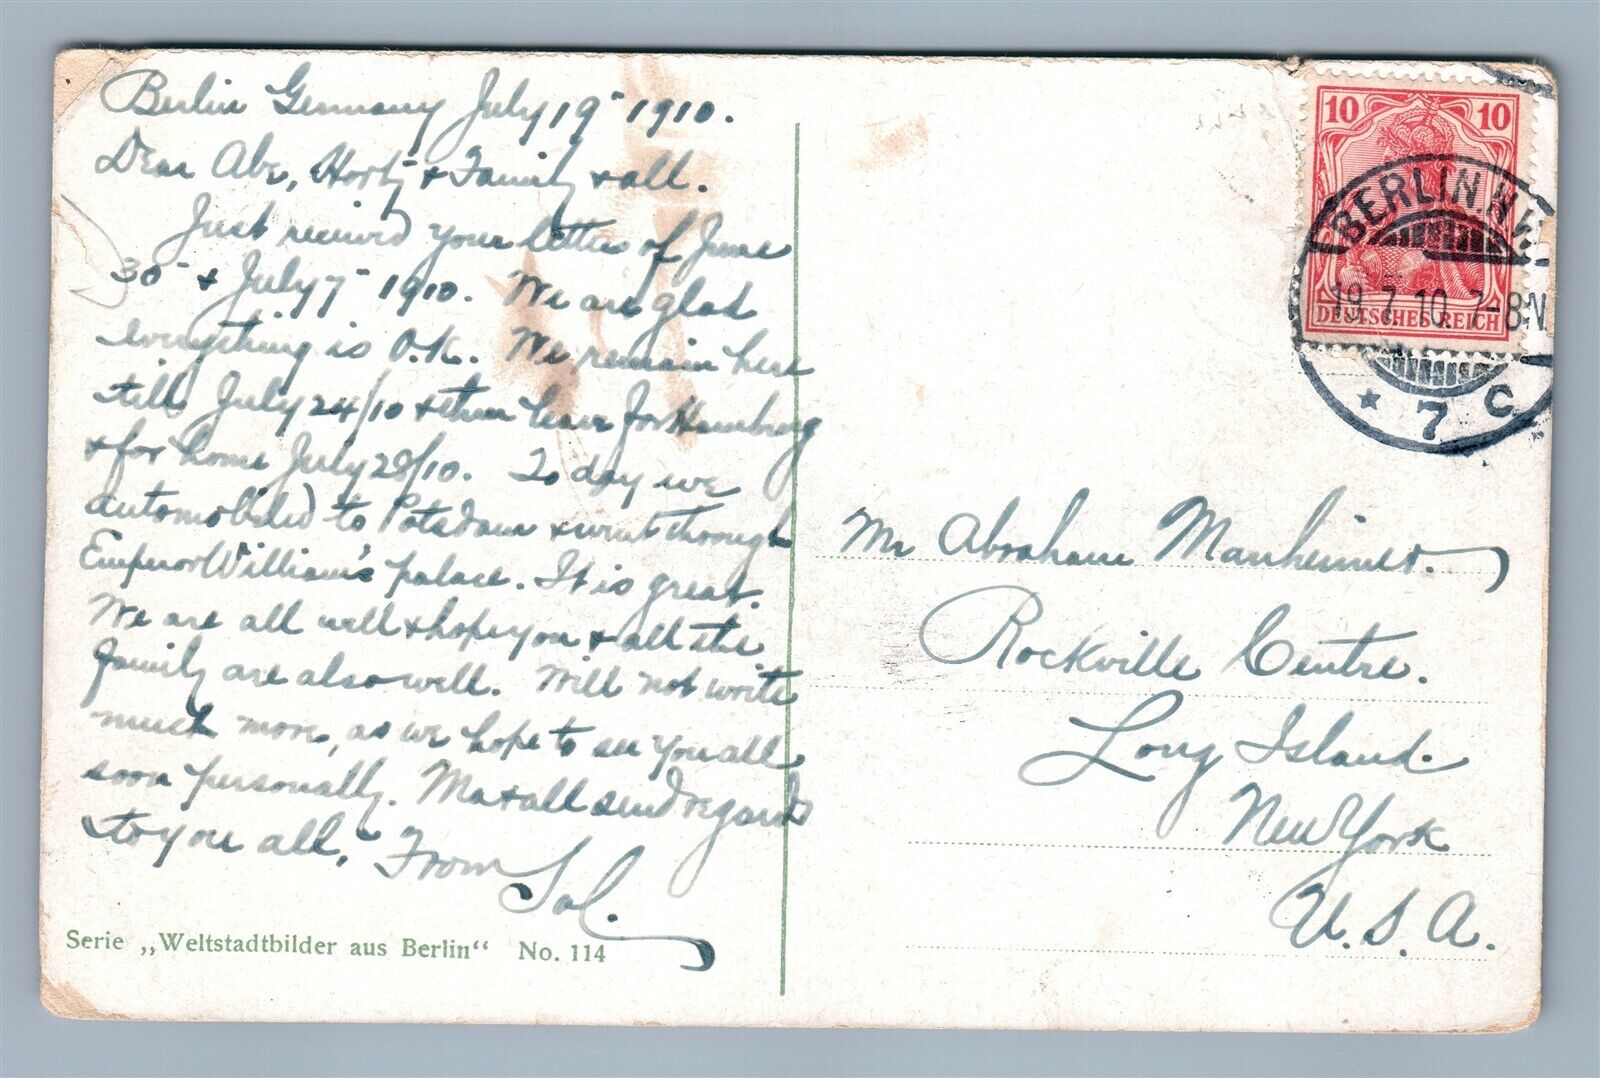 Berlin Germany July 19" 1910.
Dear Abe, Horty & Family & all.
Just received your letters of June
30" & July 7" 1910. We are glad
everything is O.K. We remain here
till July 24/10 & then leave for Hamburg
& for home July 28/10. To day we
automobiled to Potsdam & went through
Emperor William's palace. It is great.
We are all well & hope you & all the
family are also well. Will not write
much more, as we hope to see you all
soon personally. Ma & all send regards
to you all. From
Sol.
Serie „Weltstadtbilder aus Berlin“ No. 114
10 10
DEUTSCHES REICH
BERLIN.N.W.
19.7.10.7-8N
* 7 C
Mr Abraham Manheimer.
Rockville Centre.
Long Island.
New York
U.S.A.